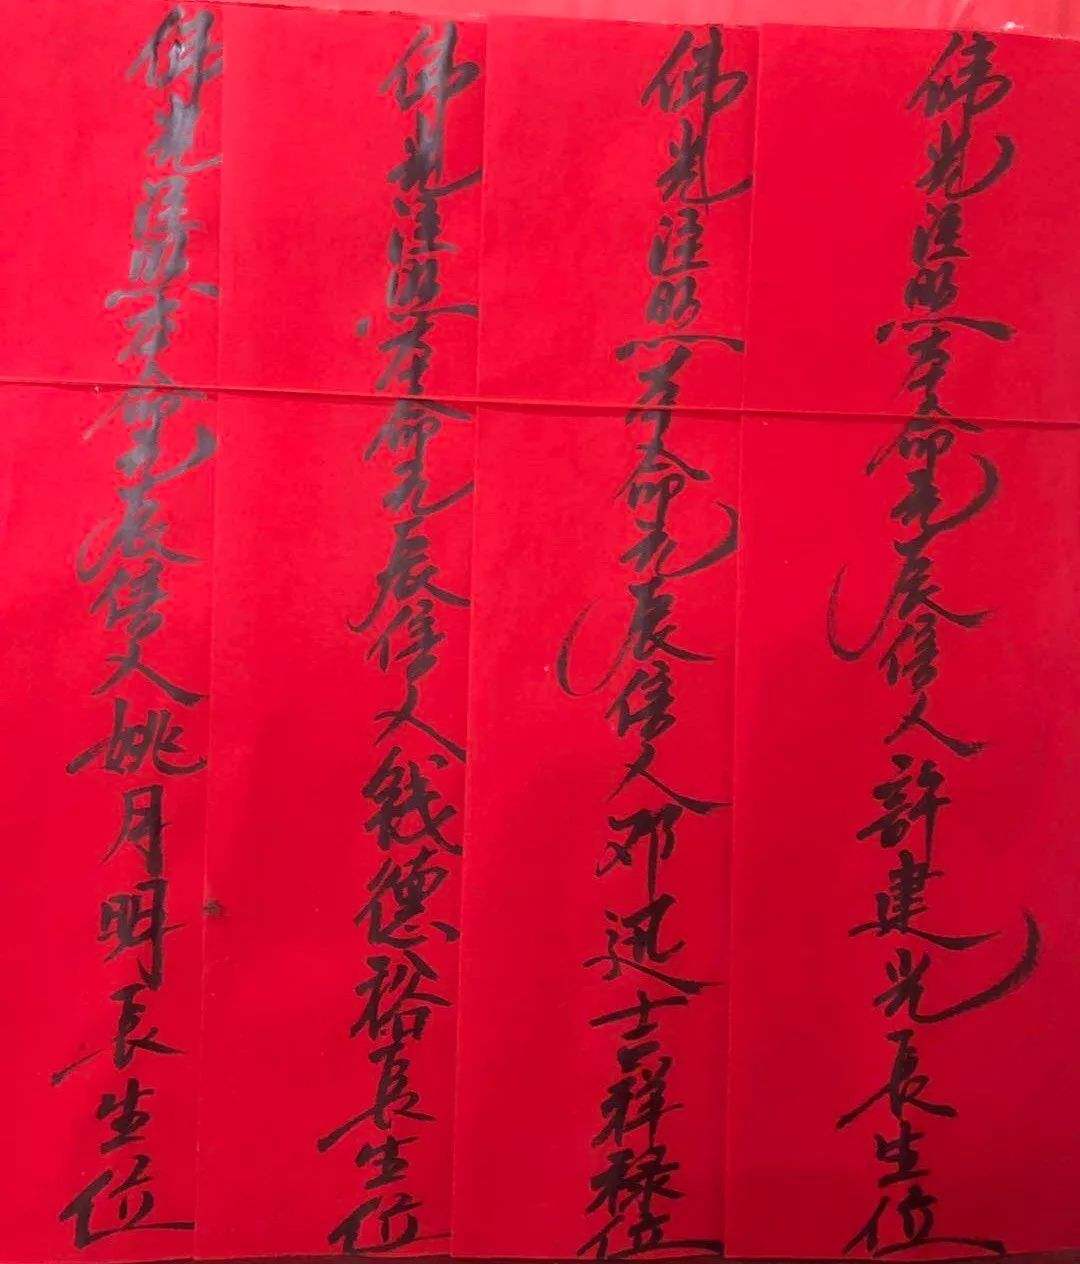 佛光注照本命元辰信人許建光長生位
佛光注照本命元辰信人邓迅吉祥禄位
佛光注照本命元辰信人錢德裕長生位
佛光注照本命元辰信人姚月明長生位